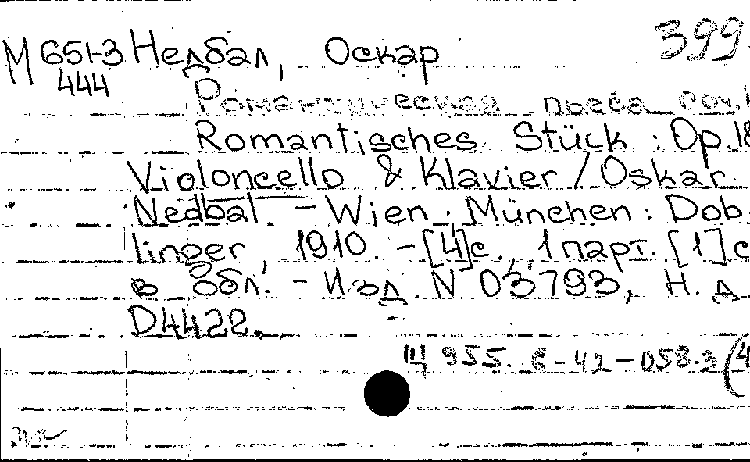 М 651-3 Недбал, Оскар 399
444
Романтическая пьеса соч.1
Romantisches Stück : Op.18
Violoncello & Klavier / Oskar
Nedbal. - Wien ; München : Dob
linger, 1910. - [4]с., 1 парт. [1]с
в обл. - Изд. N 03793, Н. д.
D4422.
Щ 955. 6-42-058.3 (4